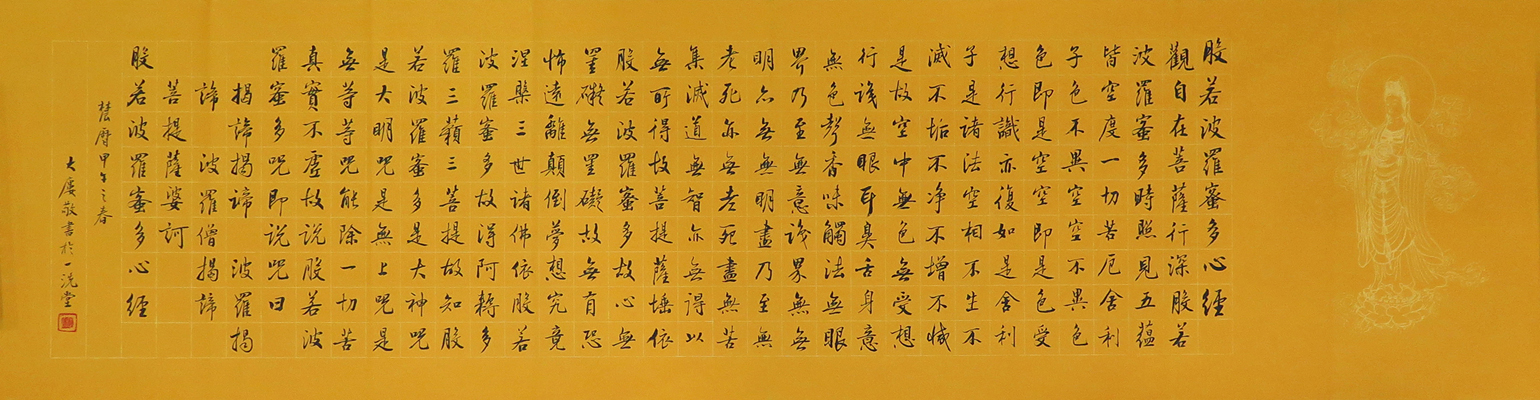 般若波羅蜜多心經
觀自在菩薩行深般若
波羅蜜多時照見五蘊
皆空度一切苦厄舍利
子色不異空空不異色
色即是空空即是色受
想行識亦復如是舍利
子是諸法空相不生不
滅不垢不净不增不減
是故空中無色無受想
行識無眼耳鼻舌身意
無色聲香味觸法無眼
界乃至無意識界無無
明亦無無明盡乃至無
老死亦無老死盡無苦
集滅道無智亦無得以
無所得故菩提薩埵依
般若波羅蜜多故心無
罣礙無罣礙故無有恐
怖遠離顛倒夢想究竟
涅槃三世諸佛依般若
波羅蜜多故得阿耨多
羅三藐三菩提故知般
若波羅蜜多是大神咒
是大明咒是無上咒是
無等等咒能除一切苦
真實不虛故說般若波
羅蜜多咒即說咒曰
揭諦揭諦 波羅揭
諦 波羅僧揭諦
菩提薩婆訶
般若波羅蜜多心經
曆甲午之春
敬書於一洗堂